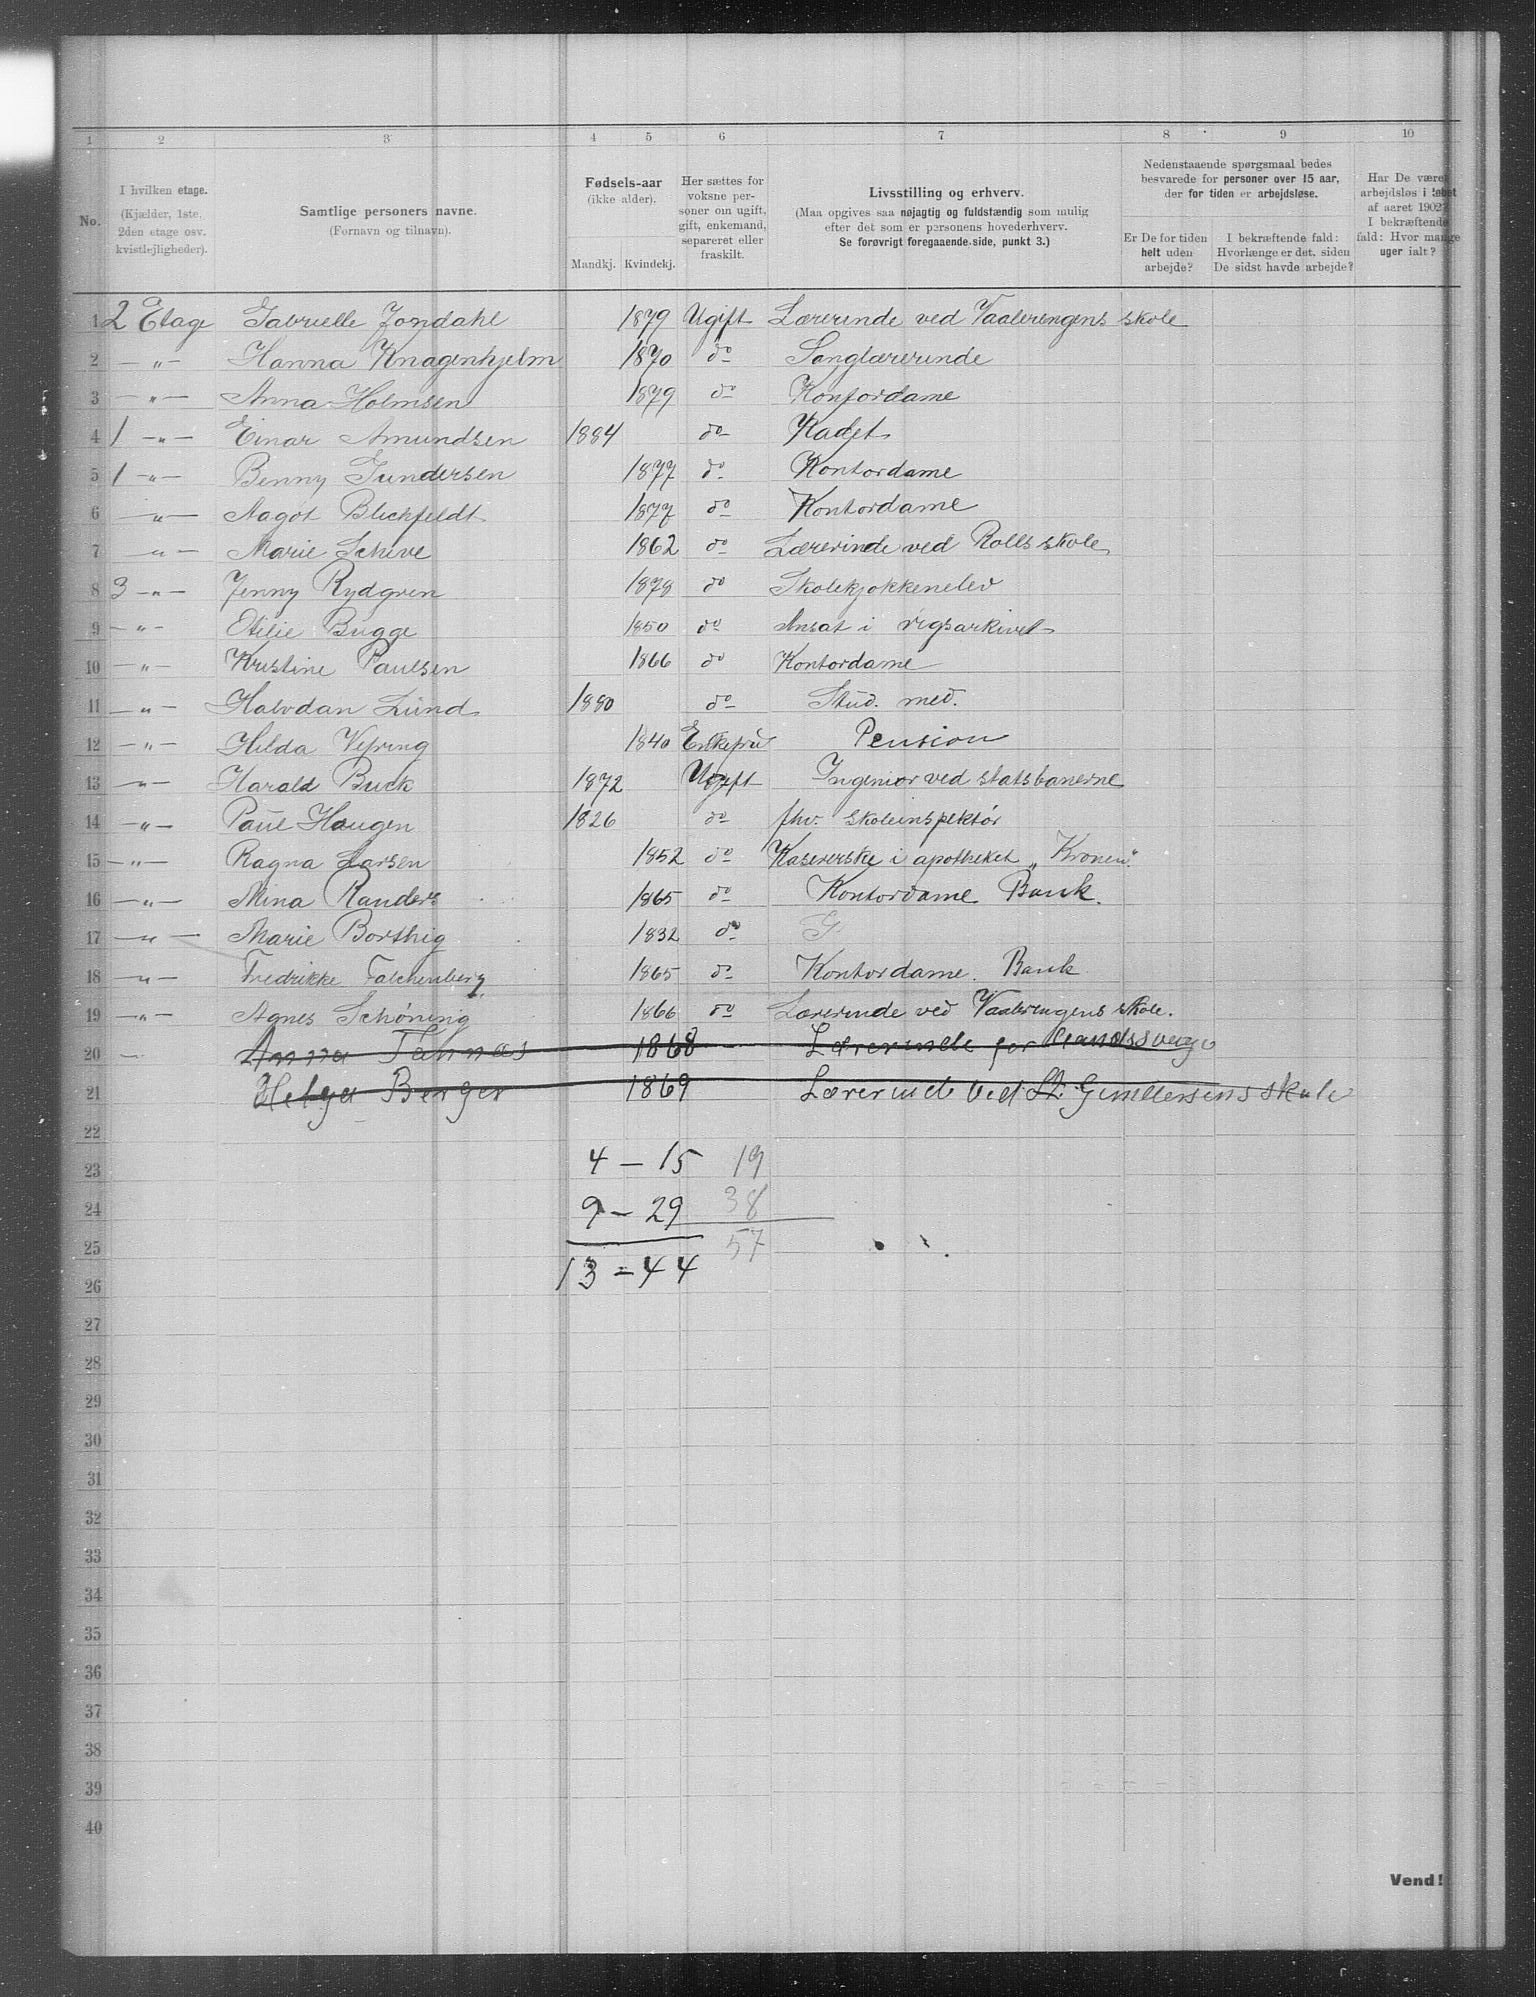 1 2 3 4 5 6 7 8 9 10
No.
I hvilken etage.
(Kjælder, 1ste, 2den etage osv. kvistlejligheder).
Samtlige personers navne.
(Fornavn og tilnavn).
Fødsels-aar
(ikke alder).
Mandkj. Kvindekj.
Her sættes for voksne personer om ugift, gift, enkemand, separeret eller fraskilt.
Livsstilling og erhverv.
(Maa opgives saa nøjagtig og fuldstændig som mulig
efter det som er personens hovederhverv.
Se forøvrigt foregaaende side, punkt 3.)
Nedenstaaende spørgsmaal bedes
besvarede for personer over 15 aar,
der for tiden er arbejdsløse.
Er De for tiden helt uden arbejde?
I bekræftende fald: Hvorlænge er det, siden De sidst havde arbejde?
Har De været arbejdsløs i løbet af aaret 1902? I bekræftende fald: Hvor mange uger ialt?
1 2 Etage Gabrielle Jondahl 1879 Ugift Lærerinde ved Vaalerengens skole
2 — " — Hanna Knagenhjelm 1870 do Sanglærerinde
3 — " — Anna Holmsen 1879 do Kontordame
4 1 — " — Einar Amundsen 1884 do Kadet
5 1 — " — Benny Gundersen 1877 do Kontordame
6 — " — Aagot Blichfeldt 1877 do Kontordame
7 — " — Marie Schive 1862 do Lærerinde ved Rolls skole
8 3 — " — Jenny Rydgren 1878 do Skolekjøkkenelev
9 — " — Otilie Bugge 1850 do Ansat i rigsarkivet
10 — " — Kristine Paulsen 1866 do Kontordame
11 — " — Halvdan Lund 1880 do Stud. med.
12 — " — Hilda Vefring 1840 Enkefru Pension
13 — " — Harald Buck 1872 Ugift Ingeniør ved statsbanerne
14 — " — Paul Haugen 1826 do fhv. skoleinspektør
15 — " — Ragna Larsen 1852 do Kasererske i apotheket „Kronen"
16 — " — Mina Randers 1865 do Kontordame Bank.
17 — " — Marie Borthig 1832 do
18 — " — Fredrikke Falchenberg 1865 do Kontordame. Bank
19 — " — Agnes Schøning 1866 do Lærerinde ved Vaalerengens skole.
20 — " — Anna 1868 Lærerinde for
21 Helga Berger 1869 Lærerinde ved St. Gundersens skole
22
23 4 — 15 19
24 9 — 29 38
25 57
26 13 — 44
27
28
29
30
31
32
33
34
35
36
37
38
39
40
Vend!